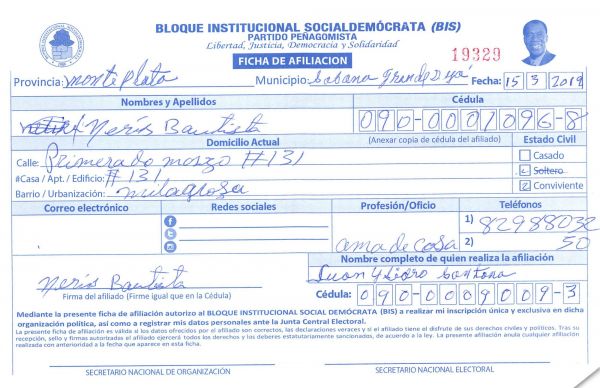 BLOQUE INSTITUCIONAL SOCIALDEMÓCRATA (BIS)
PARTIDO PEÑAGOMISTA
Libertad, Justicia, Democracia y Solidaridad
FICHA DE AFILIACION
19329
Provincia: Monte Plata Municipio: Sabana Grande Fecha: 15 3 2019
Nombres y Apellidos Cédula
Neris Bautista 090-0001096-8
Domicilio Actual (Anexar copia de cédula del afiliado) Estado Civil
Calle: Primera do marzo #131 Casado
#Casa / Apt. / Edificio: #131 Soltero
Barrio / Urbanización: milagrosa Conviviente
Correo electrónico Redes sociales Profesión/Oficio Teléfonos
1) 82988032
ama de casa 2) 50
Nombre completo de quien realiza la afiliación
Neris Bautista Juan Ysidro Santana
Firma del afiliado (Firme igual que en la Cédula) Cédula: 090-0009009-3
Mediante la presente ficha de afiliación autorizo al BLOQUE INSTITUCIONAL SOCIAL DEMÓCRATA (BIS) a realizar mi inscripción única y exclusiva en dicha
organización política, así como a registrar mis datos personales ante la Junta Central Electoral.
La presente ficha de afiliación es válida si los datos ofrecidos por el afiliado son correctos, las declaraciones veraces y si el afiliado tiene el disfrute de sus derechos civiles y políticos. Tras su
recepción, sello y firmas autorizadas el afiliado ejercerá todos los derechos y los deberes estatutariamente sancionados, de acuerdo a la ley. La presente afiliación anula cualquier afiliación
realizada con anterioridad a la fecha que aparece en esta ficha.
SECRETARIO NACIONAL DE ORGANIZACIÓN SECRETARIO NACIONAL ELECTORAL